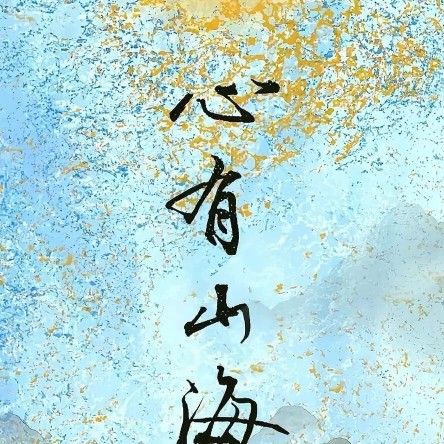 心有山海